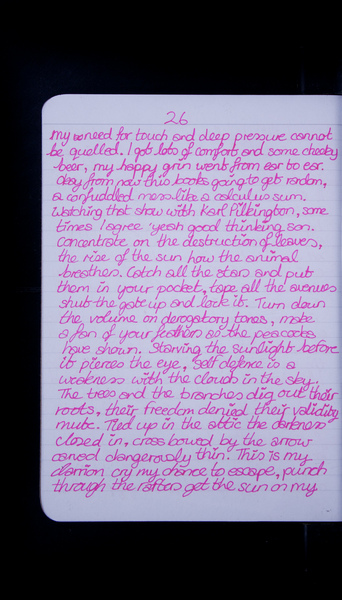 26
my need for touch and deep pressure cannot
be quelled. I got lots of comfort and some cheeky
beer, my happy grin went from ear to ear.
okay from now this books going to get random,
a confuddled mess like a calculus sum.
Watching that show with Karl Pilkington, some
times I agree 'yeah good thinking son.
Concentrate on the destruction of leaves,
the rise of the sun how the animal
breathes. Catch all the stars and put
them in your pocket, tape all the avenues
shut the gate up and lock it. Turn down
the volume on derogatory tones, make
a fan of your feathers as the peacocks
have shown. Starving the sunlight before
it pierces the eye, self defence is a
weakness with the clouds in the sky.
The trees and the branches dig out their
roots, their freedom denied their validity
mute. Tied up in the attic the darkness
closed in, cross bowed by the arrow
carved dangerously thin. This is my
clarion cry my chance to escape, punch
through the rafters get the sun on my